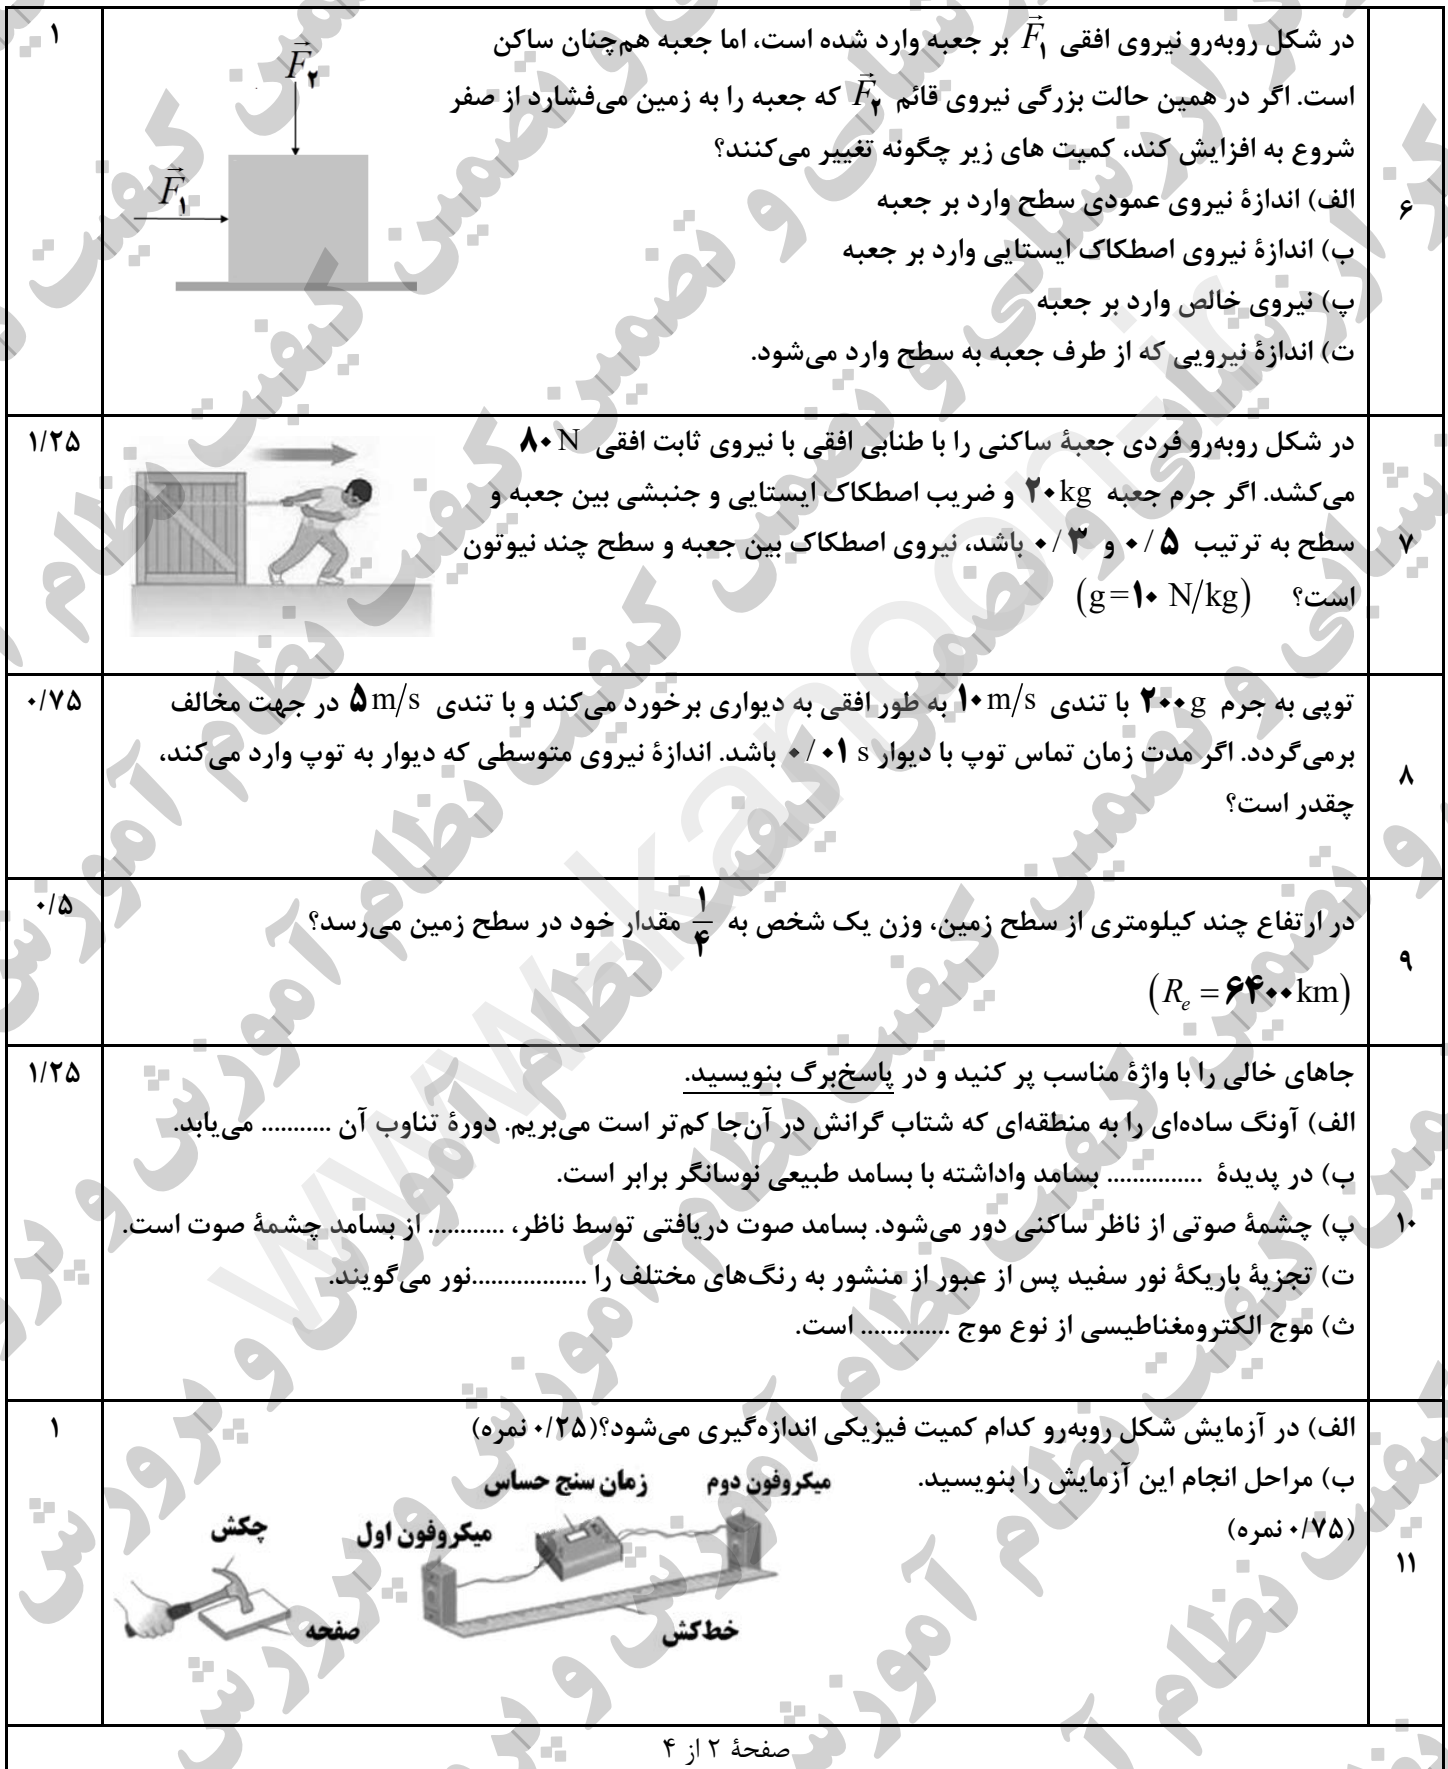 ۶
در شکل روبه‌رو نیروی افقی F⃗۱ بر جعبه وارد شده است، اما جعبه هم‌چنان ساکن
است. اگر در همین حالت بزرگی نیروی قائم F⃗۲ که جعبه را به زمین می‌فشارد از صفر
شروع به افزایش کند، کمیت های زیر چگونه تغییر می‌کنند؟
الف) اندازهٔ نیروی عمودی سطح وارد بر جعبه
ب) اندازهٔ نیروی اصطکاک ایستایی وارد بر جعبه
پ) نیروی خالص وارد بر جعبه
ت) اندازهٔ نیرویی که از طرف جعبه به سطح وارد می‌شود.
F⃗۲
F⃗۱
۱
۷
در شکل روبه‌رو فردی جعبهٔ ساکنی را با طنابی افقی با نیروی ثابت افقی ۸۰ N
می‌کشد. اگر جرم جعبه ۲۰ kg و ضریب اصطکاک ایستایی و جنبشی بین جعبه و
سطح به ترتیب ۰/۵ و ۰/۳ باشد، نیروی اصطکاک بین جعبه و سطح چند نیوتون
است؟ (g=۱۰ N/kg)
۱/۲۵
۸
توپی به جرم ۲۰۰ g با تندی ۱۰ m/s به طور افقی به دیواری برخورد می‌کند و با تندی ۵ m/s در جهت مخالف
برمی‌گردد. اگر مدت زمان تماس توپ با دیوار ۰/۰۱ s باشد. اندازهٔ نیروی متوسطی که دیوار به توپ وارد می‌کند،
چقدر است؟
۰/۷۵
۹
در ارتفاع چند کیلومتری از سطح زمین، وزن یک شخص به ۱/۴ مقدار خود در سطح زمین می‌رسد؟
(Re = ۶۴۰۰ km)
۰/۵
۱۰
جاهای خالی را با واژهٔ مناسب پر کنید و در پاسخ‌برگ بنویسید.
الف) آونگ ساده‌ای را به منطقه‌ای که شتاب گرانش در آن‌جا کم‌تر است می‌بریم. دورهٔ تناوب آن ........... می‌یابد.
ب) در پدیدهٔ ............... بسامد واداشته با بسامد طبیعی نوسانگر برابر است.
پ) چشمهٔ صوتی از ناظر ساکنی دور می‌شود. بسامد صوت دریافتی توسط ناظر، ............ از بسامد چشمهٔ صوت است.
ت) تجزیهٔ باریکهٔ نور سفید پس از عبور از منشور به رنگ‌های مختلف را ..................نور می‌گویند.
ث) موج الکترومغناطیسی از نوع موج .............. است.
۱/۲۵
۱۱
الف) در آزمایش شکل روبه‌رو کدام کمیت فیزیکی اندازه‌گیری می‌شود؟(۰/۲۵ نمره)
ب) مراحل انجام این آزمایش را بنویسید.
(۰/۷۵ نمره)
میکروفون دوم
زمان سنج حساس
میکروفون اول
چکش
صفحه
خط‌کش
۱
صفحهٔ ۲ از ۴
www.kanoon.ir
مرکز ارزشیابی و تضمین کیفیت نظام آموزش و پرورش